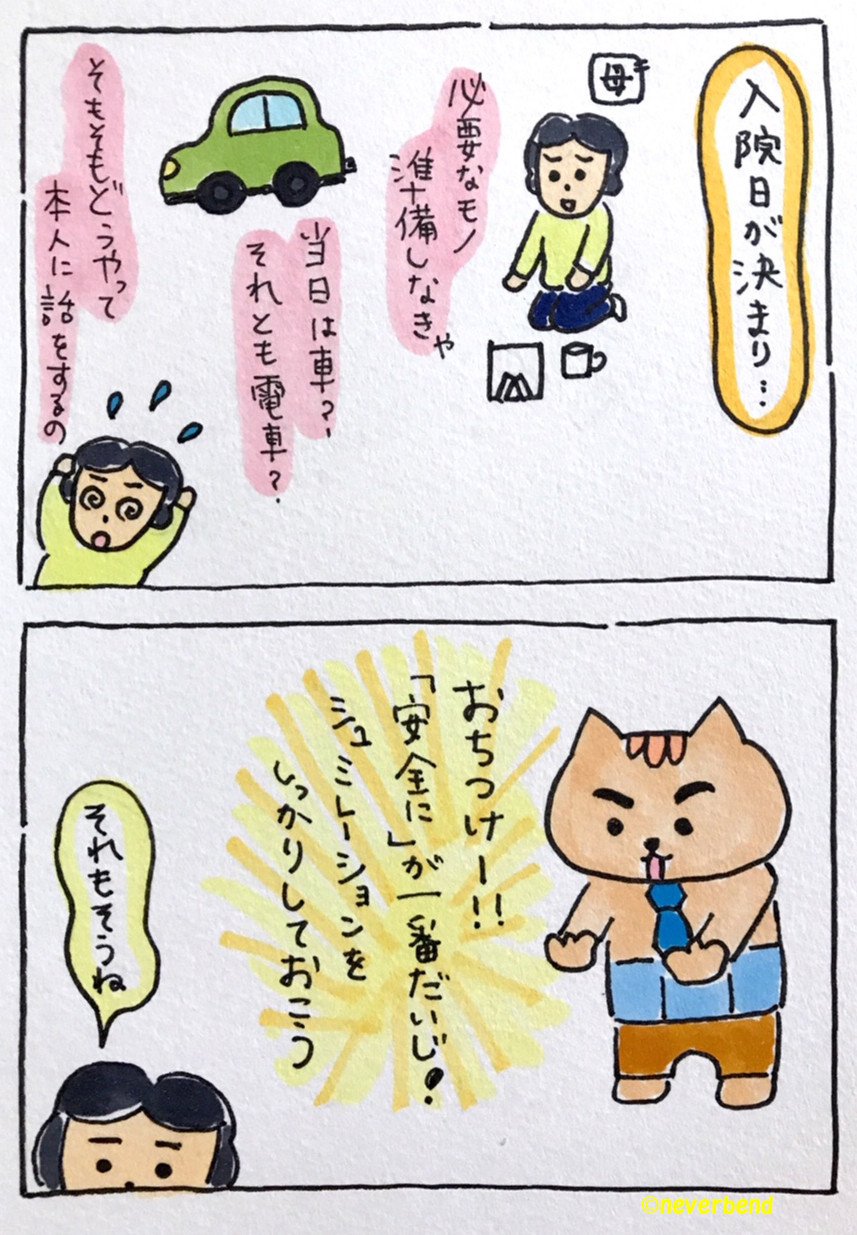 入院日が決まり…
母
必要なモノ
準備しなきゃ
当日は車?
それとも電車?
そもそもどうやって
本人に話をするの
おちつけー!!
「安全に」が一番だいじ!
シュミレーションを
しっかりしておこう
それもそうね
©neverbend